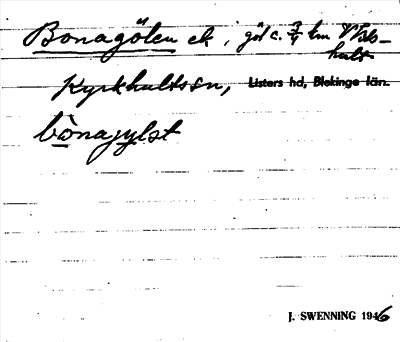 Bonagölen ek, göl c. 3/4 km V Ebbe-
hult
Kyrkhults sn, Listers hd, Blekinge län.
bònajylət
J. SWENNING 1946